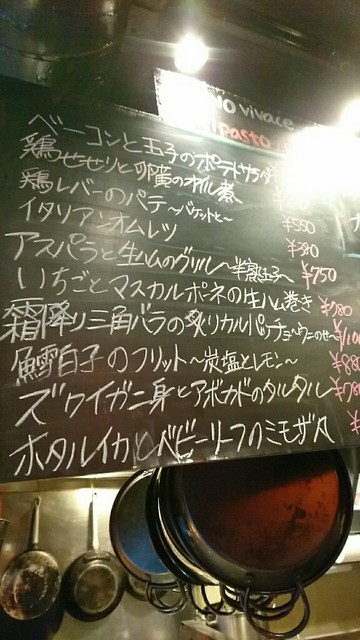 vivace
pasto
ベーコンと玉子のポテトサラダ
鶏せせりと卵黄のオイル煮
鶏レバーのパテ〜バケットと〜 ¥550
イタリアンオムレツ ¥380
アスパラと生ハムのグリル〜半熟玉子〜 ¥750
いちごとマスカルポーネの生ハム巻き ¥780
霜降り三角バラの炙りカルパッチョ〜ウニのせ〜
鱈白子のフリット〜炭塩とレモン〜 ¥880
ズワイガニ身とアボカドのタルタル
ホタルイカとベビーリーフのミモザ